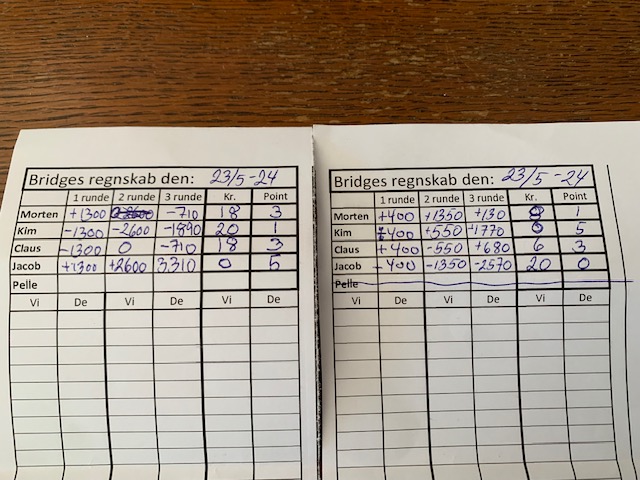 Bridges regnskab den: 23/5-24
1 runde 2 runde 3 runde Kr. Point
Morten +1300 -710 18 3
Kim -1300 -2600 -1890 20 1
Claus -1300 0 -710 18 3
Jacob +1300 +2600 3310 0 5
Pelle
Vi De Vi De Vi De
Bridges regnskab den: 23/5-24
1 runde 2 runde 3 runde Kr. Point
Morten +400 +1350 +130 1
Kim +550 +1770 5
Claus +400 -550 +680 6 3
Jacob -400 -1350 -2570 20 0
Pelle
Vi De Vi De Vi De